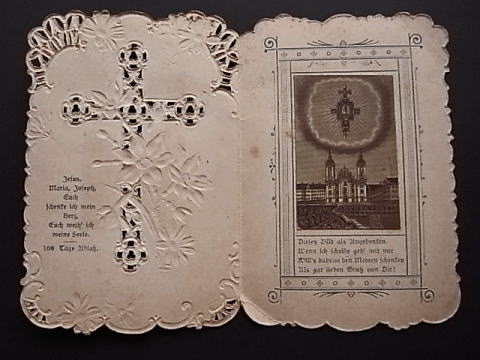 Jesus,
Maria, Joseph,
Euch
schenke ich mein
Herz,
Euch weih' ich
meine Seele.
100 Tage Ablaß.
Dieses Bild als Angedenken
Wenn ich scheide geh' mit mir
Will's daheim den Meinen schenken
Als gar lieben Gruß von Dir!